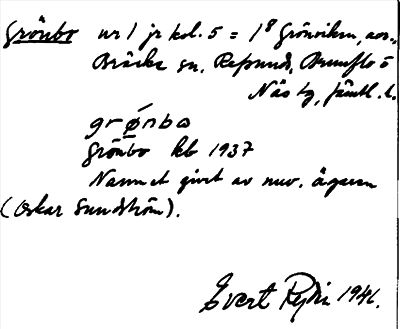 Grönbo nr 1 jr kol. 5 = 1⁸ Grönviken, avs.,
Bräcke sn, Refsunds, Brunflo o
Näs tg, Jämtl. l.
grønbo
Grönbo kb 1937
Namnet givet av nuv. ägaren
(Oskar Sundström).
Evert 1941.